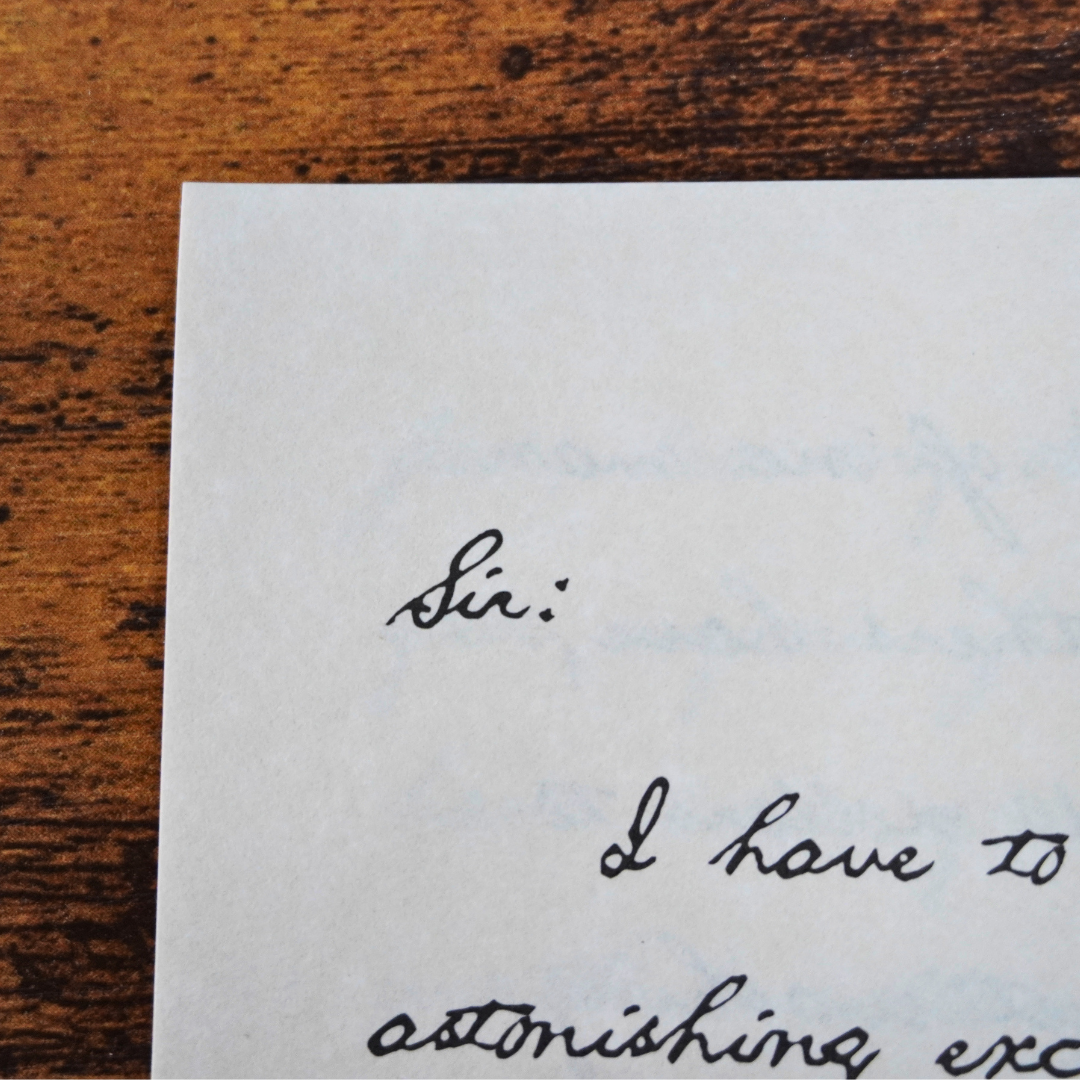 Sir:
I have to
astonishing exc